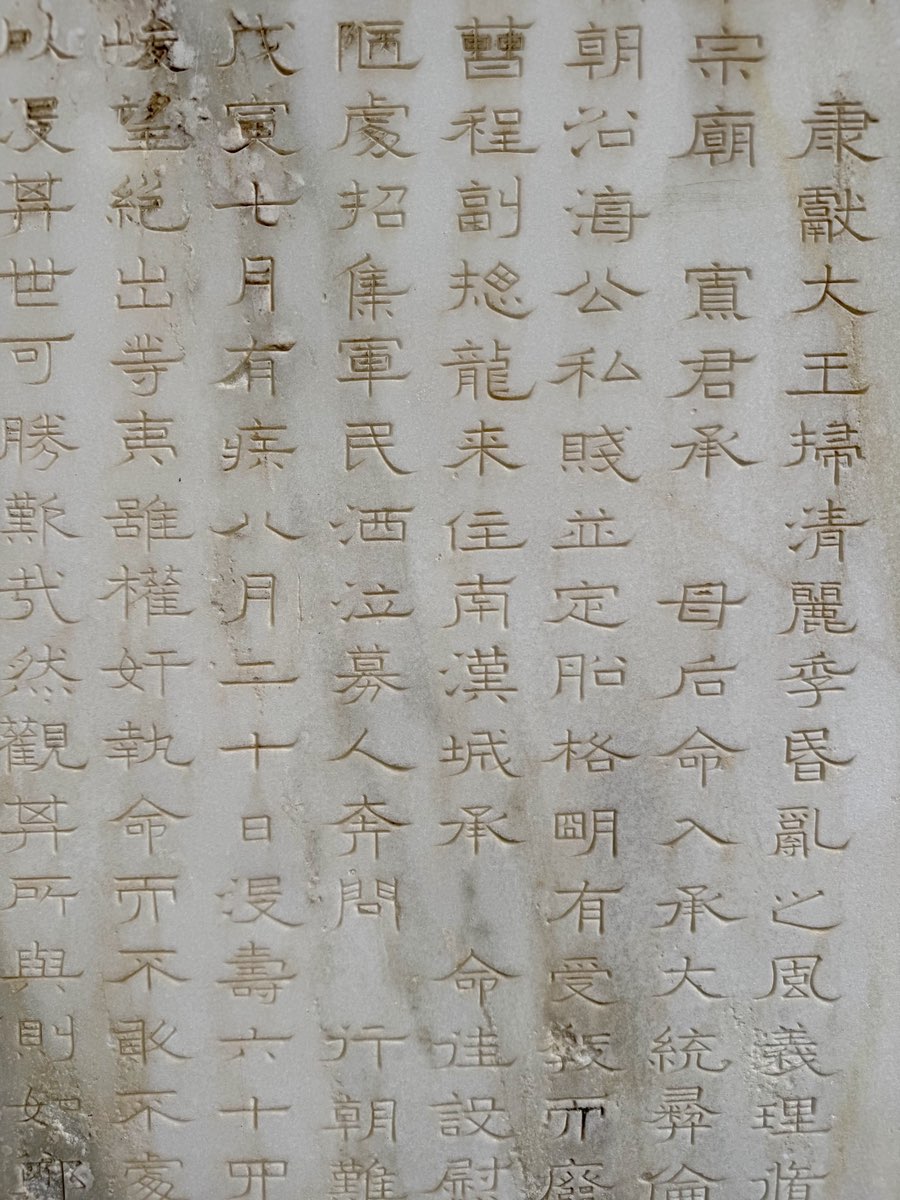 康獻大王掃清麗季昬亂之風義理
宗廟 寡君承 母后命入承大統彛倫
朝沿海公私賤並定胎格明有受敎而廢
曹程副摠龍来住南漢城承 命往設慰
陋處招集軍民洒泣募人奔問 行朝難
戊寅七月有疾八月二十日沒壽六十四
峻望絶出等夷雖權奸執命而不敢不
以沒其世可勝歎哉然觀其所與則如